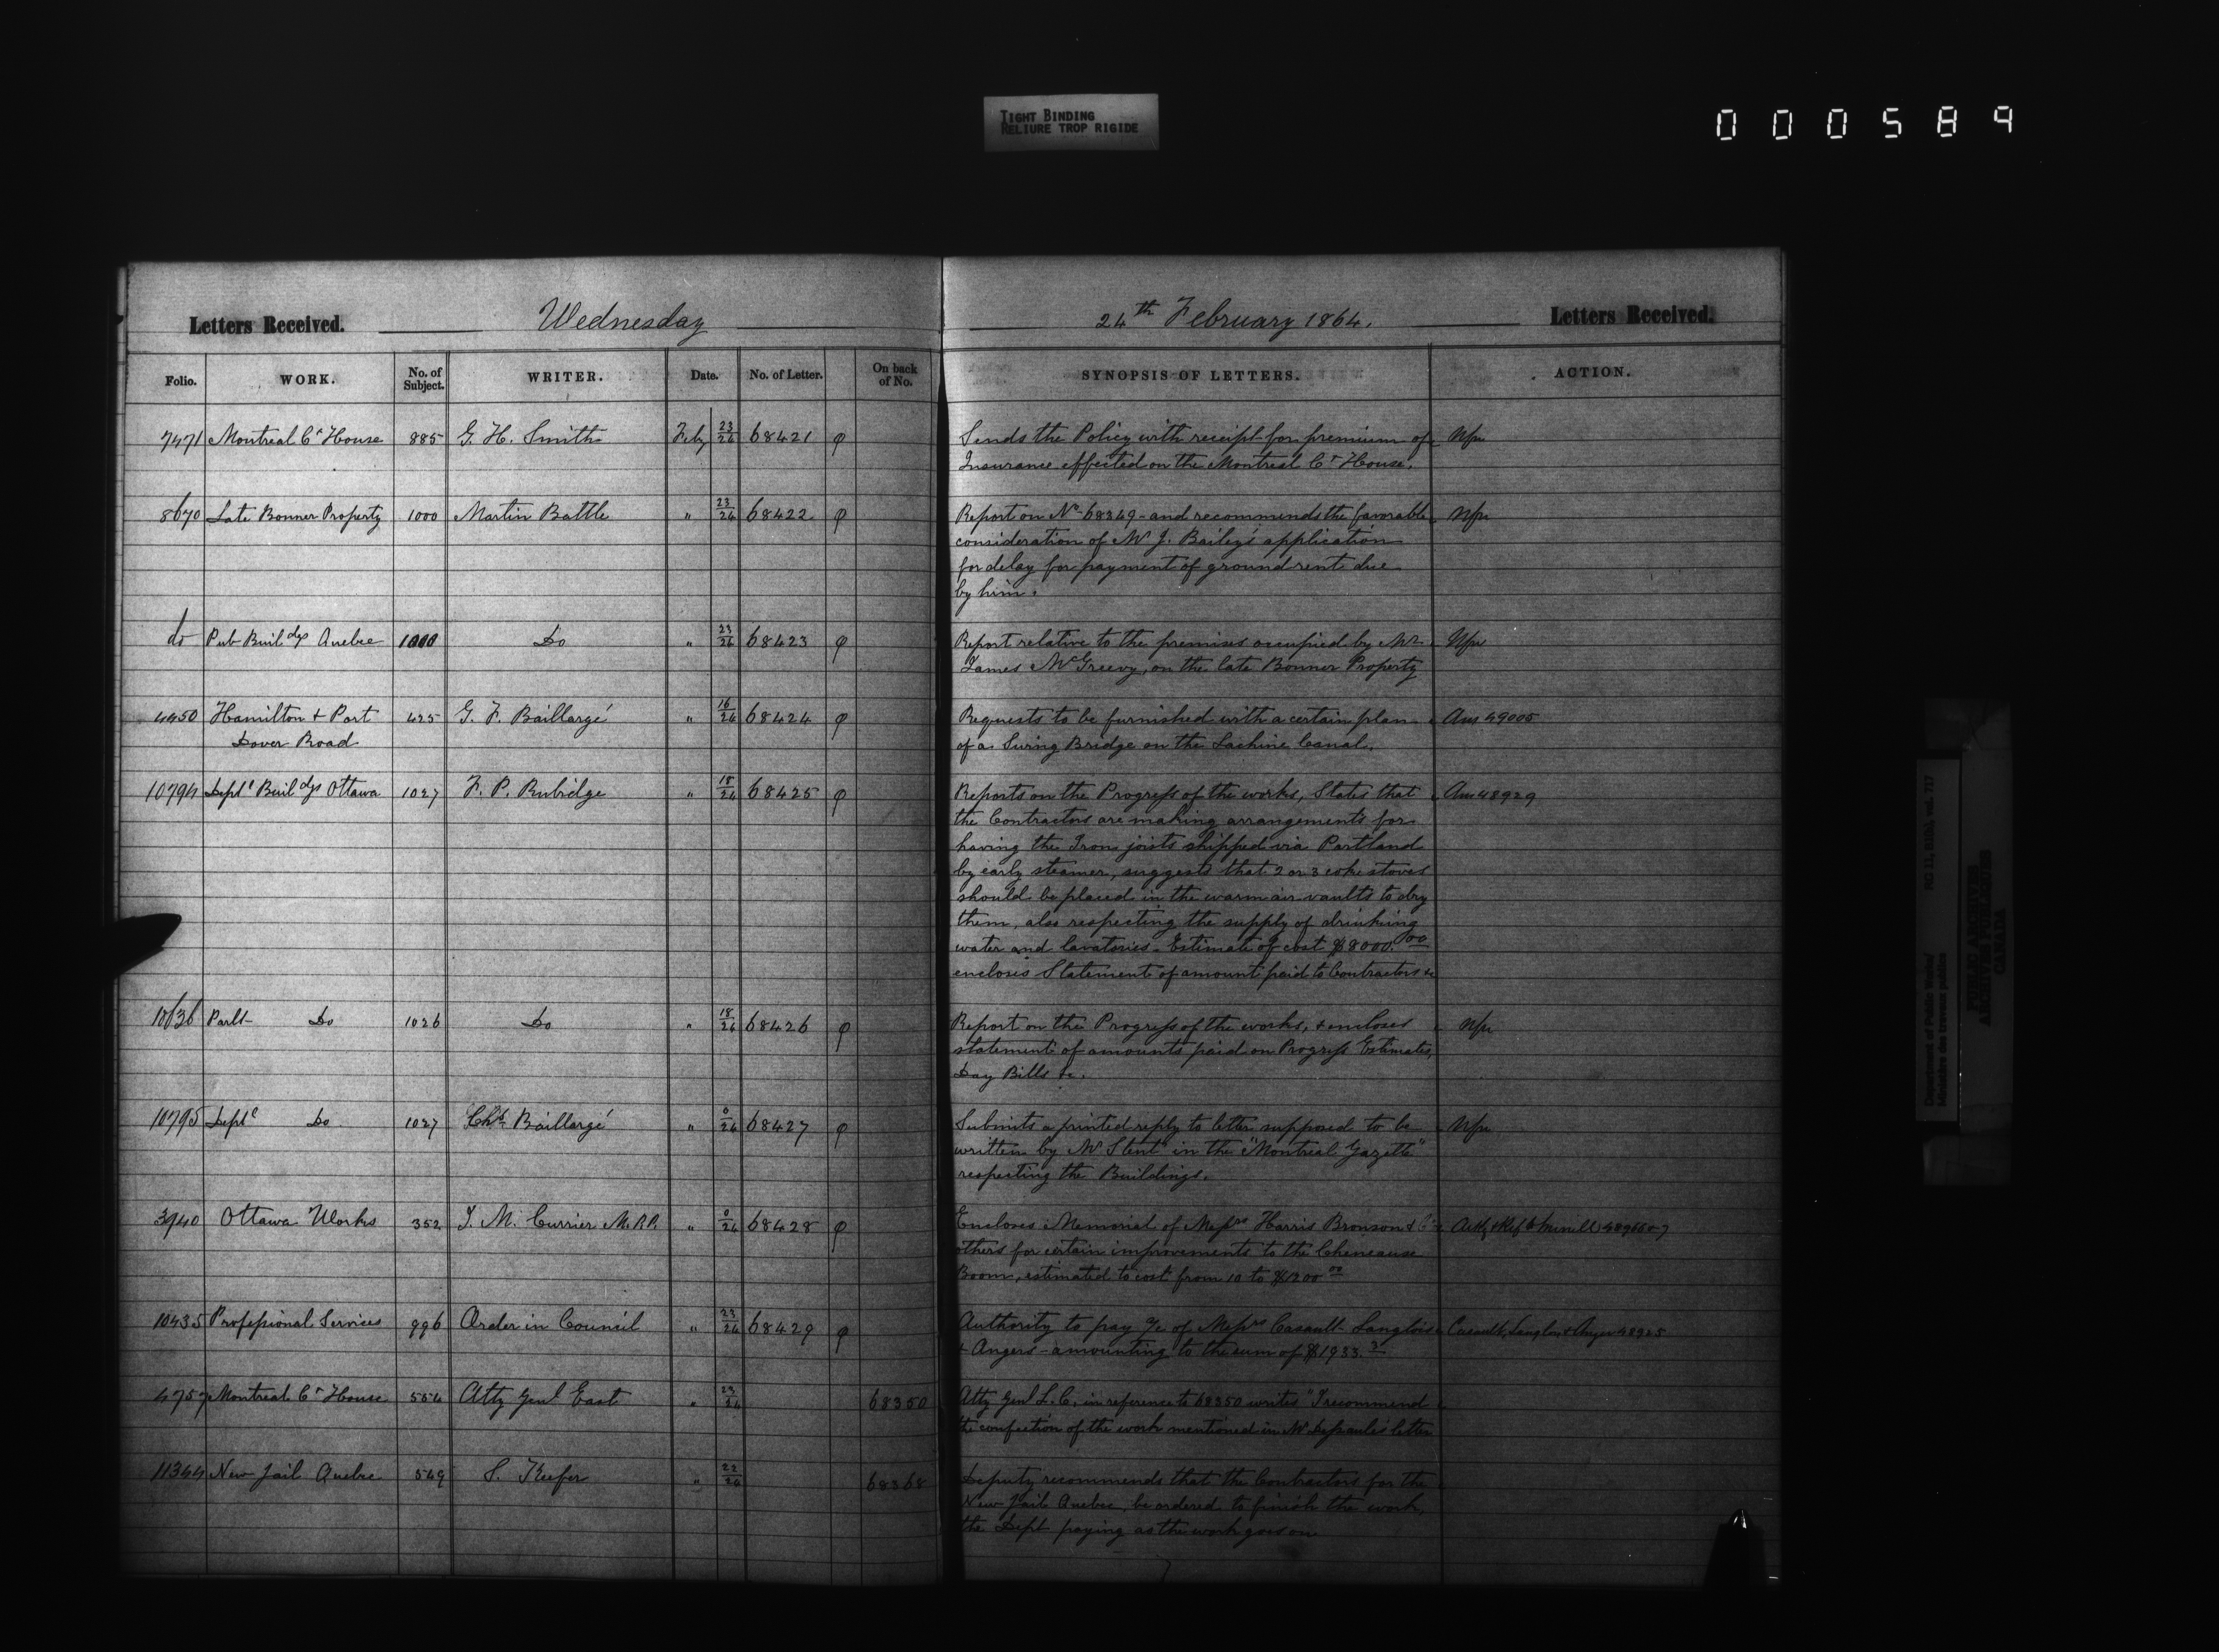 TIGHT BINDING
RELIURE TROP RIGIDE
000589
Letters Received. Wednesday 24th February 1864. Letters Received.
Folio. WORK. No. of Subject. WRITER. Date. No. of Letter. On back of No. SYNOPSIS OF LETTERS. ACTION.
7471 Montreal Ct House 885 G. H. Smith Feby 23/24 68421 φ Sends the Policy with receipt for premium of
Insurance effected on the Montreal Ct House.
8670 Late Bonner Property 1000 Martin Battle " 23/24 68422 φ Report on No 68349 - and recommends the favorable
consideration of Mr J. Bailey's application
for delay for payment of ground rent due
by him.
do Pub Buildgs Quebec 1000 Do " 23/24 68423 φ Report relative to the premises occupied by Mr
James McGreevy, on the late Bonner Property
4450 Hamilton & Port 425 G. F. Baillargé " 16/24 68424 φ Requests to be furnished with a certain plan Ans 49005
Dover Road of a Swing Bridge on the Lachine Canal.
10794 Deptl Buildgs Ottawa 1027 F. P. Rubidge " 18/24 68425 φ Reports on the Progress of the works, States that Ans 48929
the Contractors are making arrangements for
having the Iron joists shipped via Portland
by early steamer, suggests that 2 or 3 coke stoves
should be placed in the warm air vaults to dry
them, also respecting the supply of drinking
water and lavatories - Estimate of cost $8000.00
encloses Statement of amount paid to Contractors &c
10636 Parlt Do 1026 Do " 18/24 68426 φ Report on the Progress of the works, & encloses
statement of amounts paid on Progress Estimates,
Day Bills &c.
10795 Deptl Do 1027 Chs Baillargé " 0/24 68427 φ Submits a printed reply to letter supposed to be
written by Mr Stent in the "Montreal Gazette"
respecting the Buildings.
3940 Ottawa Works 352 J. M. Currier M.P.P. " 0/24 68428 φ Encloses Memorial of Messrs Harris Bronson & Co
others for certain improvements to the Cheneaux
Boom, estimated to cost from 10 to $1200 00
10435 Professional Services 996 Order in Council " 23/24 68429 φ Authority to pay a/c of Messrs Casault Langlois Casault, Langlois & Angers 48925
& Angers - amounting to the sum of $1933.
4757 Montreal Ct House 554 Atty Genl East " 23/24 68350 Atty Genl L. C. in reference to 68350 writes "I recommend
the confection of the work mentioned in Mr letter
11344 New Jail Quebec 549 S. Keefer " 22/24 68368 Deputy recommends that the Contractors for the
New Jail Quebec, be ordered to finish the work,
the Dept paying as the work goes on
Department of Public Works/ RG 11, B1(b), vol. 717
Ministère des travaux publics
PUBLIC ARCHIVES
ARCHIVES PUBLIQUES
CANADA